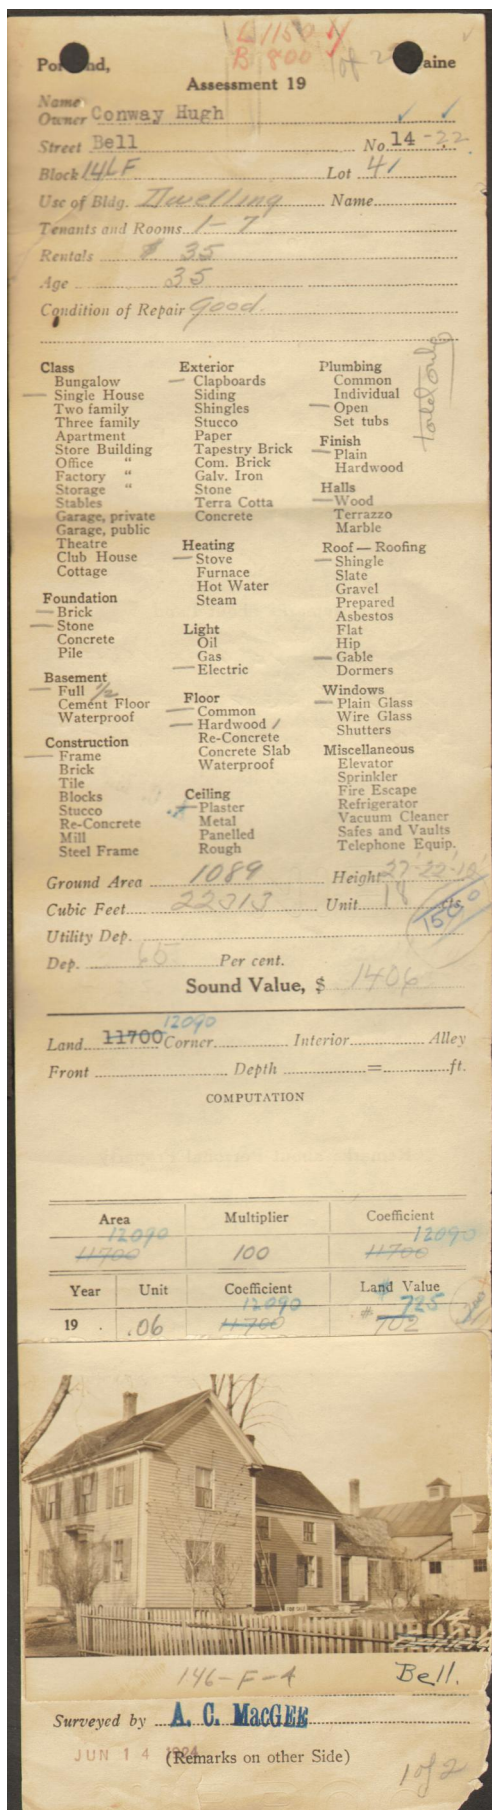 L 1150
B 800
1 of 2
Portland, Maine
Assessment 19
Name
Owner Conway Hugh
Street Bell No. 14-22
Block 146F Lot 4
Use of Bldg. Dwelling Name
Tenants and Rooms 1-7
Rentals $ 35
Age 35
Condition of Repair good.
toilet only
Class
Bungalow
Single House
Two family
Three family
Apartment
Store Building
Office "
Factory "
Storage "
Stables
Garage, private
Garage, public
Theatre
Club House
Cottage
Foundation
Brick
Stone
Concrete
Pile
Basement
Full 1/2
Cement Floor
Waterproof
Construction
Frame
Brick
Tile
Blocks
Stucco
Re-Concrete
Mill
Steel Frame
Exterior
Clapboards
Siding
Shingles
Stucco
Paper
Tapestry Brick
Com. Brick
Galv. Iron
Stone
Terra Cotta
Concrete
Heating
Stove
Furnace
Hot Water
Steam
Light
Oil
Gas
Electric
Floor
Common
Hardwood 1
Re-Concrete
Concrete Slab
Waterproof
Ceiling
Plaster
Metal
Panelled
Rough
Plumbing
Common
Individual
Open
Set tubs
Finish
Plain
Hardwood
Halls
Wood
Terrazzo
Marble
Roof — Roofing
Shingle
Slate
Gravel
Prepared
Asbestos
Flat
Hip
Gable
Dormers
Windows
Plain Glass
Wire Glass
Shutters
Miscellaneous
Elevator
Sprinkler
Fire Escape
Refrigerator
Vacuum Cleaner
Safes and Vaults
Telephone Equip.
Ground Area 1089 Height
Cubic Feet 22313 Unit 18 cts.
1500
Utility Dep.
Dep. 65 Per cent.
Sound Value, $ 1406
12090
Land 11700 Corner Interior Alley
Front Depth = ft.
COMPUTATION
Area Multiplier Coefficient
12090 12090
11700 100 11700
Year Unit Coefficient Land Value
12090 $ 725
19 .06 11700 # 702
14
146-F-4 Bell.
Surveyed by A. C. MacGEE
JUN 14 1924
(Remarks on other Side)
1 of 2